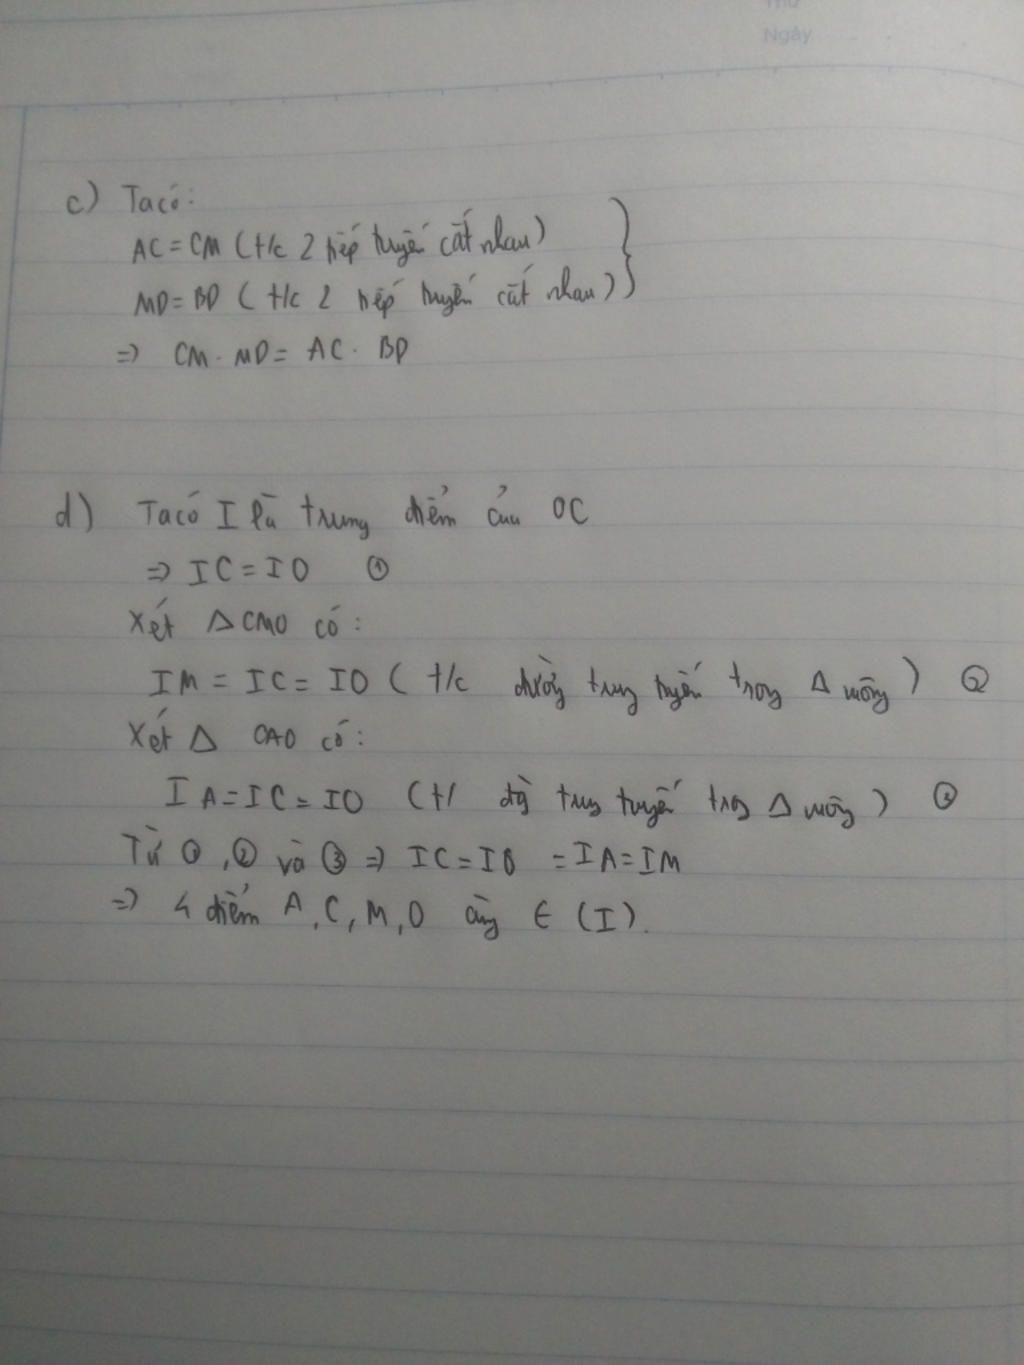 Thứ
Ngày
c) Ta có:
AC = CM (t/c 2 tiếp tuyến cắt nhau)
MD = BD (t/c 2 tiếp tuyến cắt nhau) }
=> CM . MD = AC . BD
d) Ta có I là trung điểm của OC
=> IC = IO ①
Xét Δ CMO có:
IM = IC = IO (t/c đường trung tuyến trong Δ vuông) ②
Xét Δ CAO có:
IA = IC = IO (t/ đg trung tuyến trong Δ vuông) ③
Từ ①, ② và ③ => IC = IO = IA = IM
=> 4 điểm A, C, M, O cùng ∈ (I).